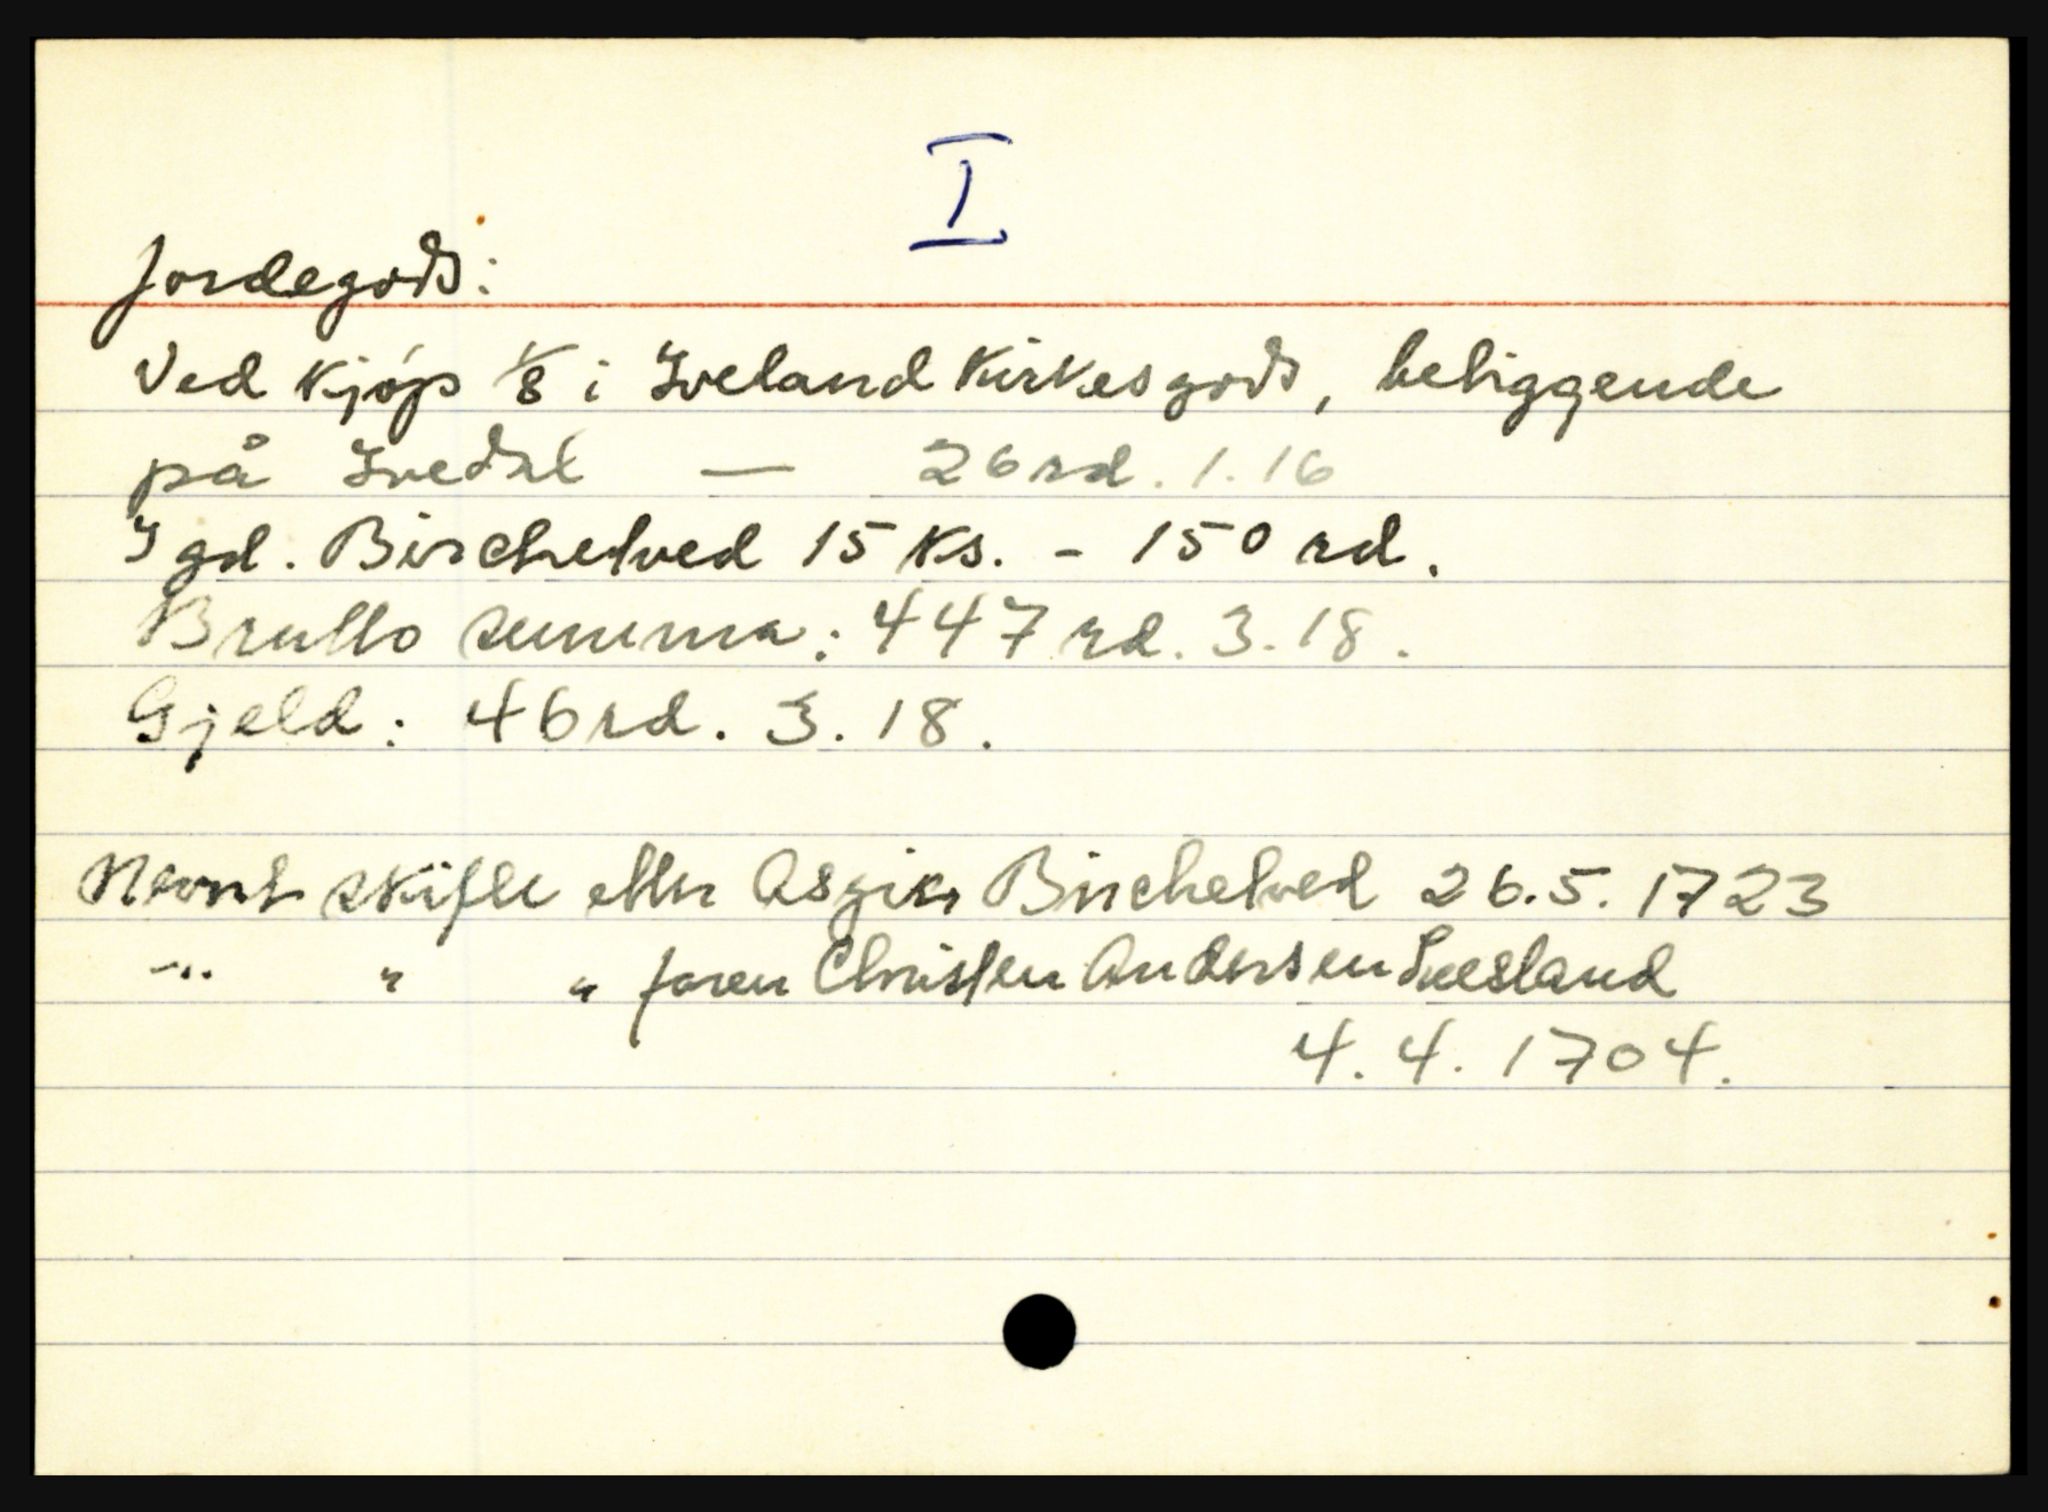 I
Jordegods:
Ved kjøp 1/8 i Iveland Kirkesgods, beliggende
på Ivedal — 26 rd. 1. 16
I gd. Birchelved 15 ks. - 150 rd.
Brutto summa: 447 rd. 3. 18.
Gjeld: 46 rd. 3. 18.
Nevnt skifte etter Asgier Birchelved 26.5. 1723
-„- " " faren Christen Andersen
4. 4. 1704.